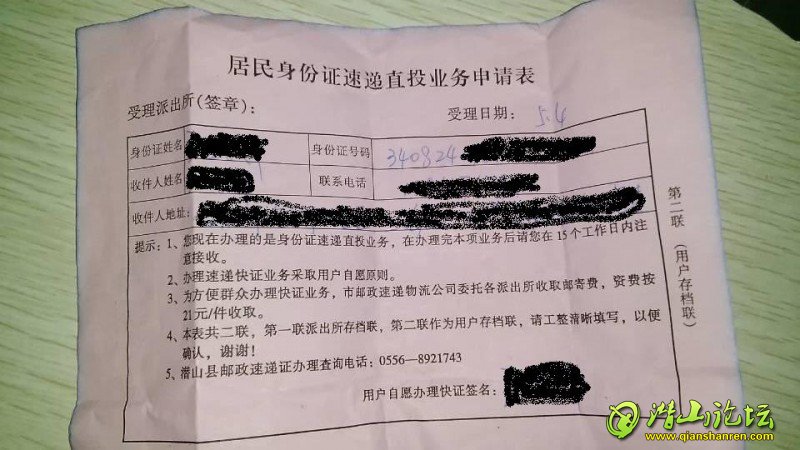 居民身份证速递直投业务申请表
受理派出所(签章): 受理日期: 5.4
身份证姓名 身份证号码 340824
收件人姓名 联系电话
收件人地址:
提示: 1、您现在办理的是身份证速递直投业务，在办理完本项业务后请您在15个工作日内注
意接收。
2、办理速递快证业务采取用户自愿原则。
3、为方便群众办理快证业务，市邮政速递物流公司委托各派出所收取邮寄费，资费按
21元/件收取。
4、本表共二联，第一联派出所存档联，第二联作为用户存档联，请工整清晰填写，以便
确认，谢谢！
5、潜山县邮政速递证办理查询电话: 0556—8921743
用户自愿办理快证签名:
第二联（用户存档联）
潜山论坛
www.qianshanren.com